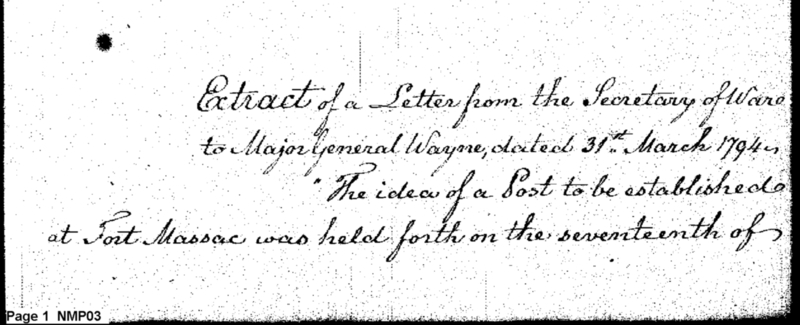 Extract of a Letter from the Secretary of War
to Major General Wayne, dated 31st March 1794.
"The idea of a Post to be established
at Fort Massac was held forth on the seventeenth of
Page 1 NMP03